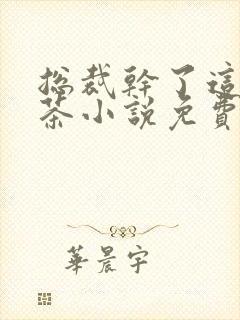 總裁幹了這
茶小說免費
華晨宇